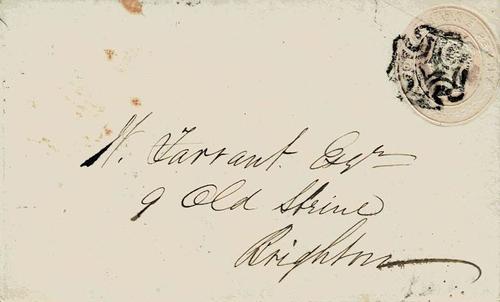 W. Tarrant. Esqr
9 Old Steine
Brighton